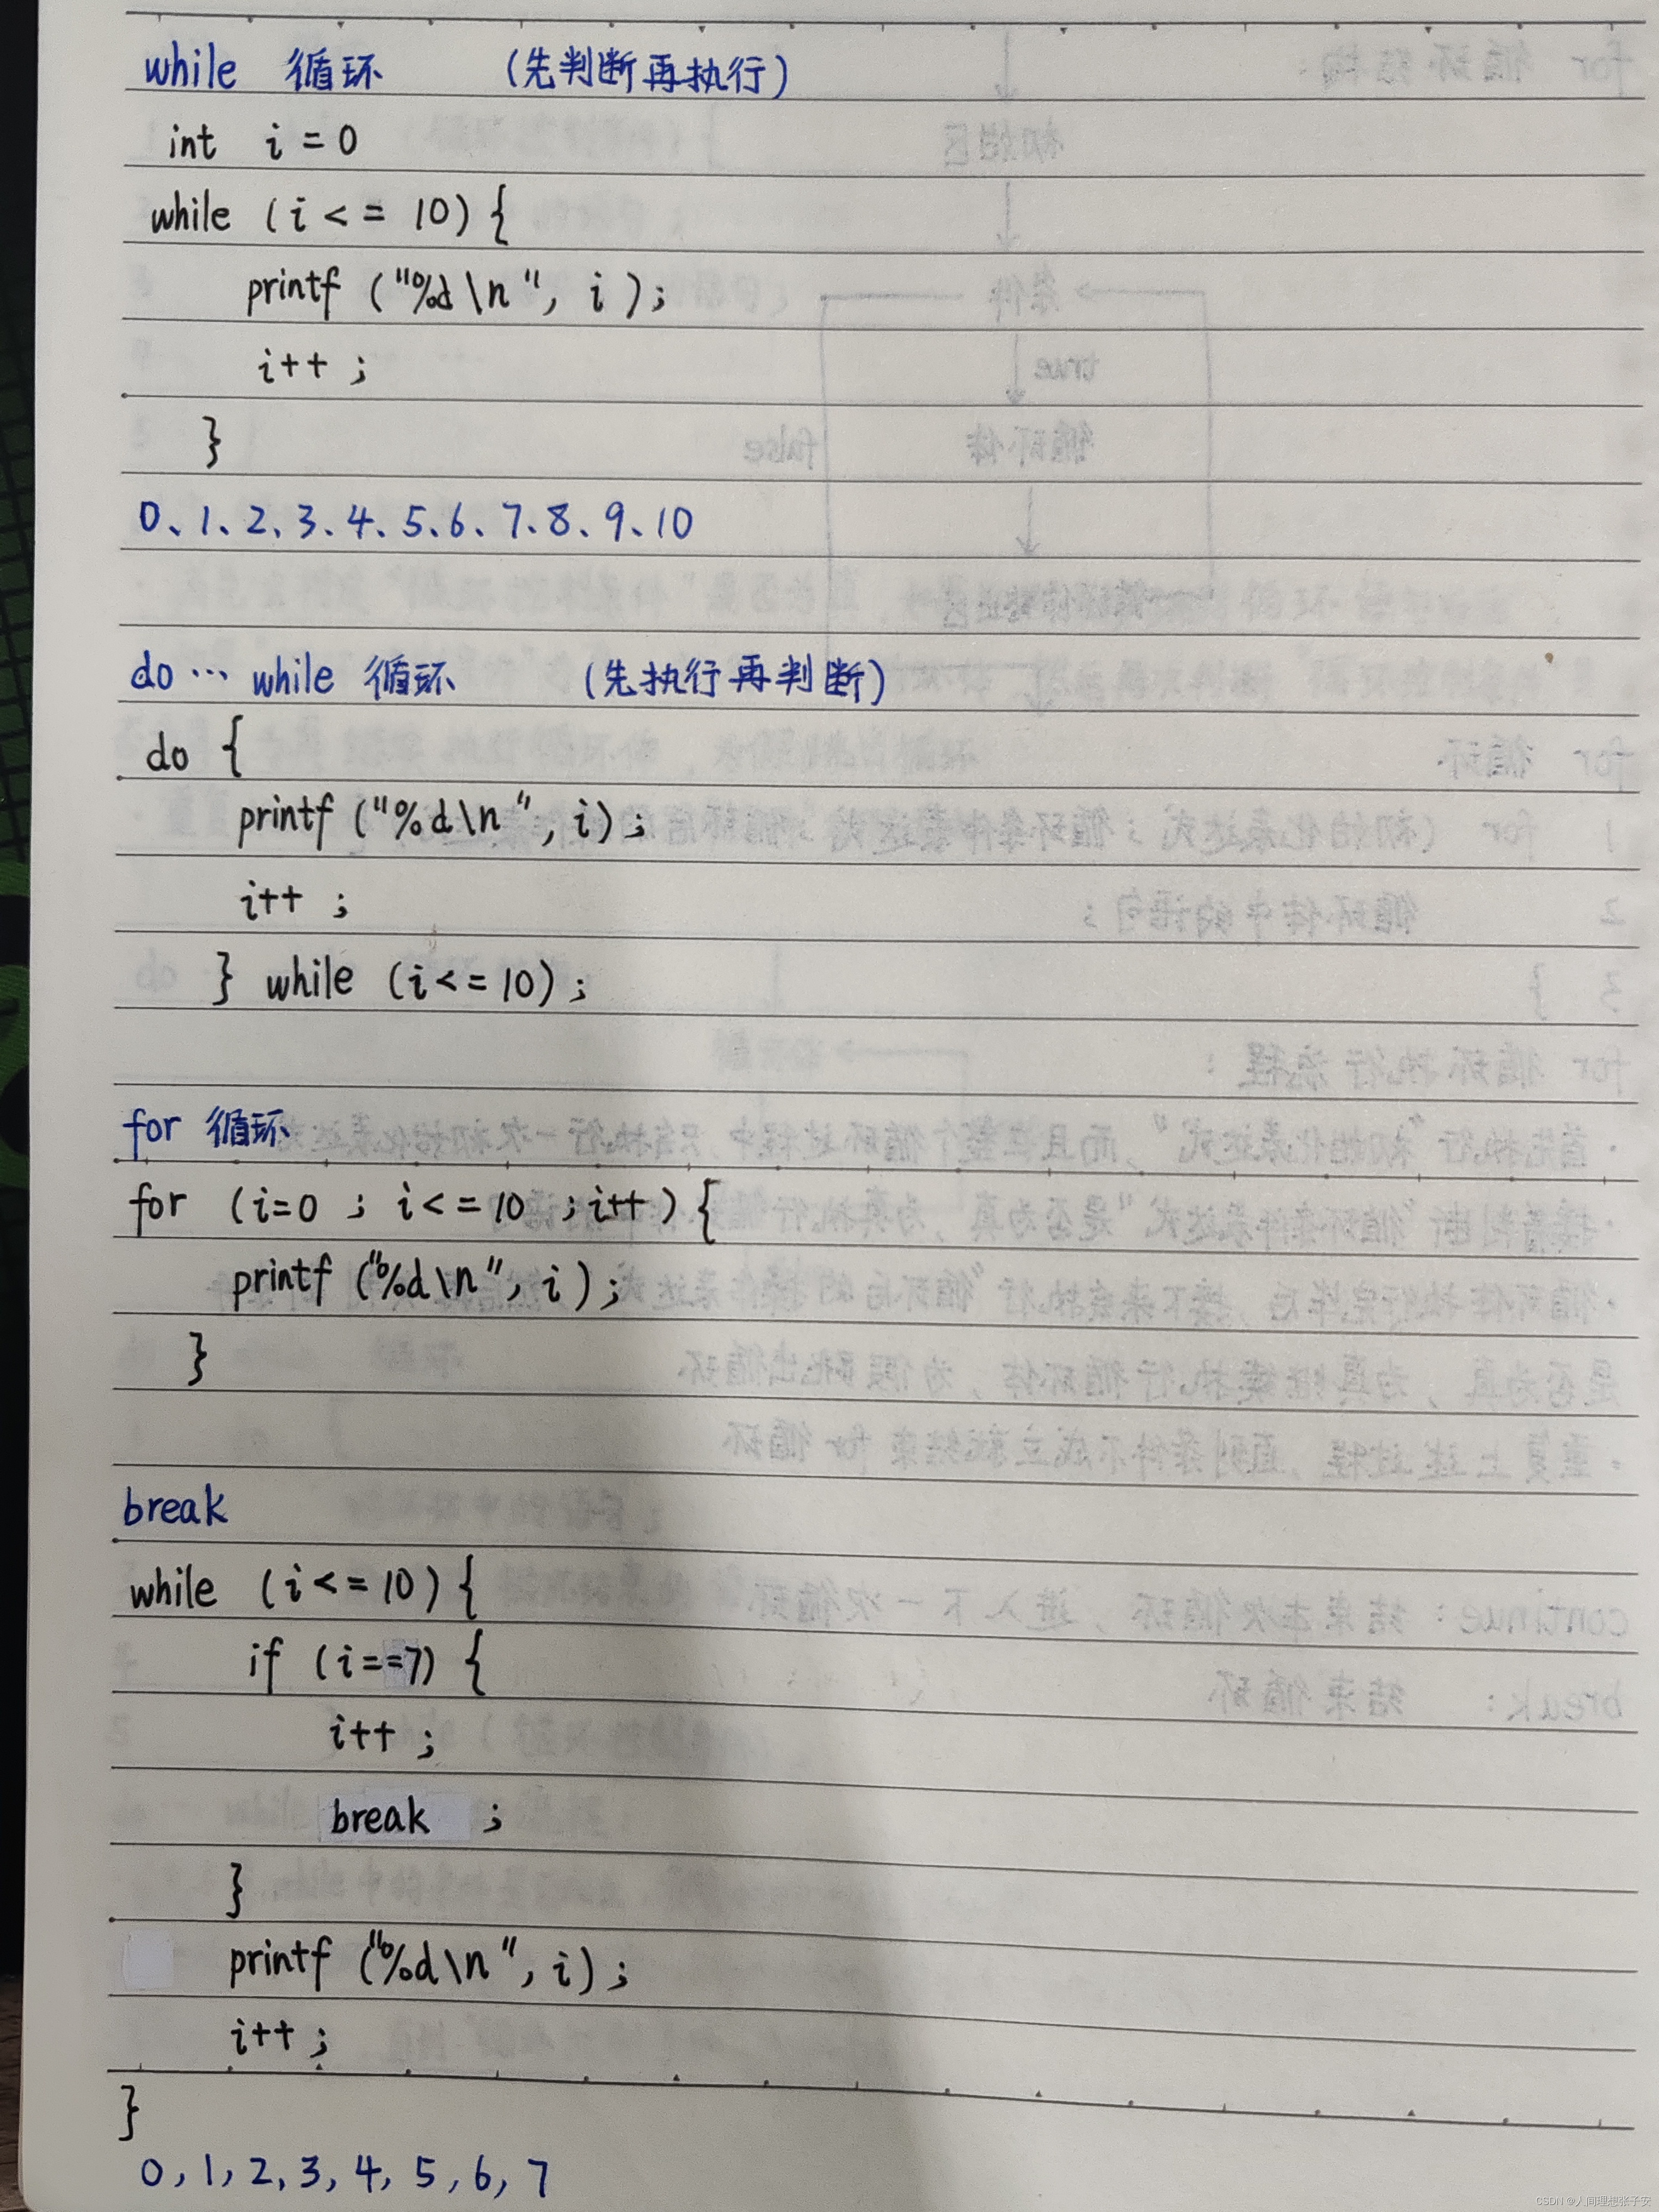 while 循环 (先判断再执行)
int i = 0
while (i <= 10) {
printf ("%d\n", i);
i++ ;
}
0、1、2、3、4、5、6、7、8、9、10
do … while 循环 (先执行再判断)
do {
printf ("%d\n", i);
i++ ;
} while (i <= 10);
for 循环
for (i=0 ; i <= 10 ; i++) {
printf ("%d\n", i);
}
break
while (i <= 10) {
if (i==7) {
i++ ;
break ;
}
printf ("%d\n", i);
i++ ;
}
0, 1, 2, 3, 4, 5, 6, 7
CSDN @人间理想张子安